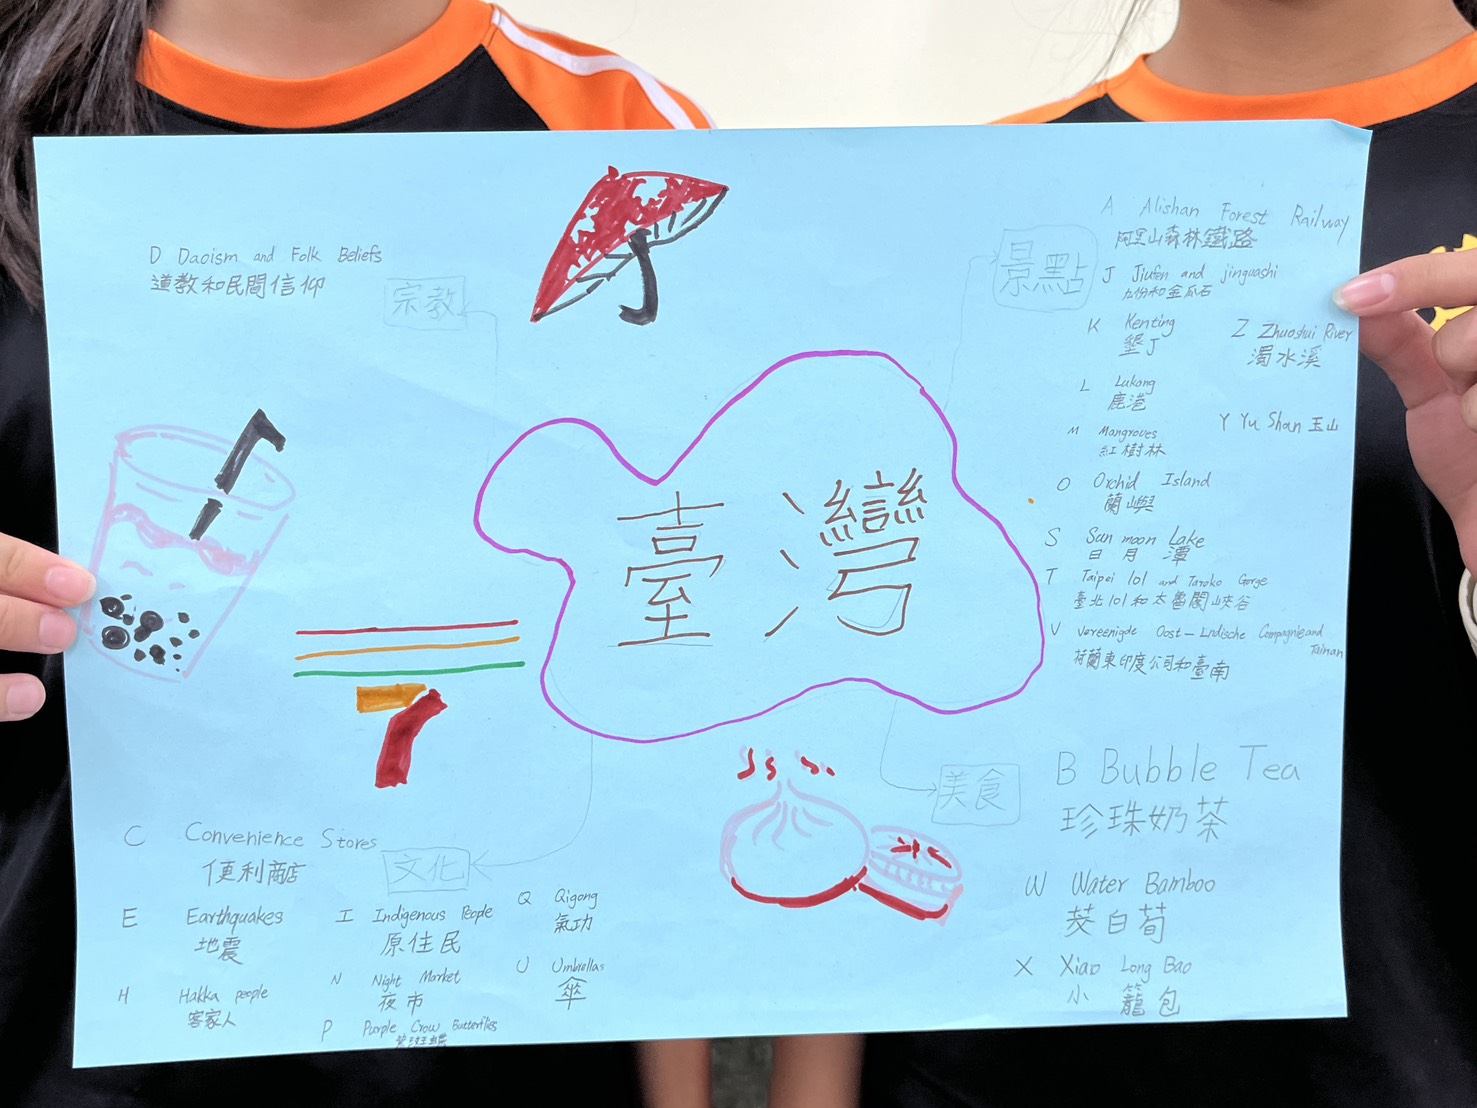 D Daoism and Folk Beliefs
道教和民間信仰
宗教
臺灣
景點
A Alishan Forest Railway
阿里山森林鐵路
J Jiufen and jinguashi
九份和金瓜石
K Kenting
墾丁
Z Zhuoshui River
濁水溪
L Lukang
鹿港
Y Yu Shan 玉山
M Mangroves
紅樹林
O Orchid Island
蘭嶼
S Sun moon Lake
日月潭
T Taipei 101 and Taroko Gorge
臺北101和太魯閣峽谷
V Vereenigde Oost-Indische Compagnie and
Tainan
荷蘭東印度公司和臺南
美食
B Bubble Tea
珍珠奶茶
W Water Bamboo
茭白荀
X Xiao Long Bao
小籠包
文化
C Convenience Stores
便利商店
E Earthquakes
地震
H Hakka people
客家人
I Indigenous People
原住民
N Night Market
夜市
P Purple Crow Butterflies
Q Qigong
氣功
U Umbrellas
傘
7